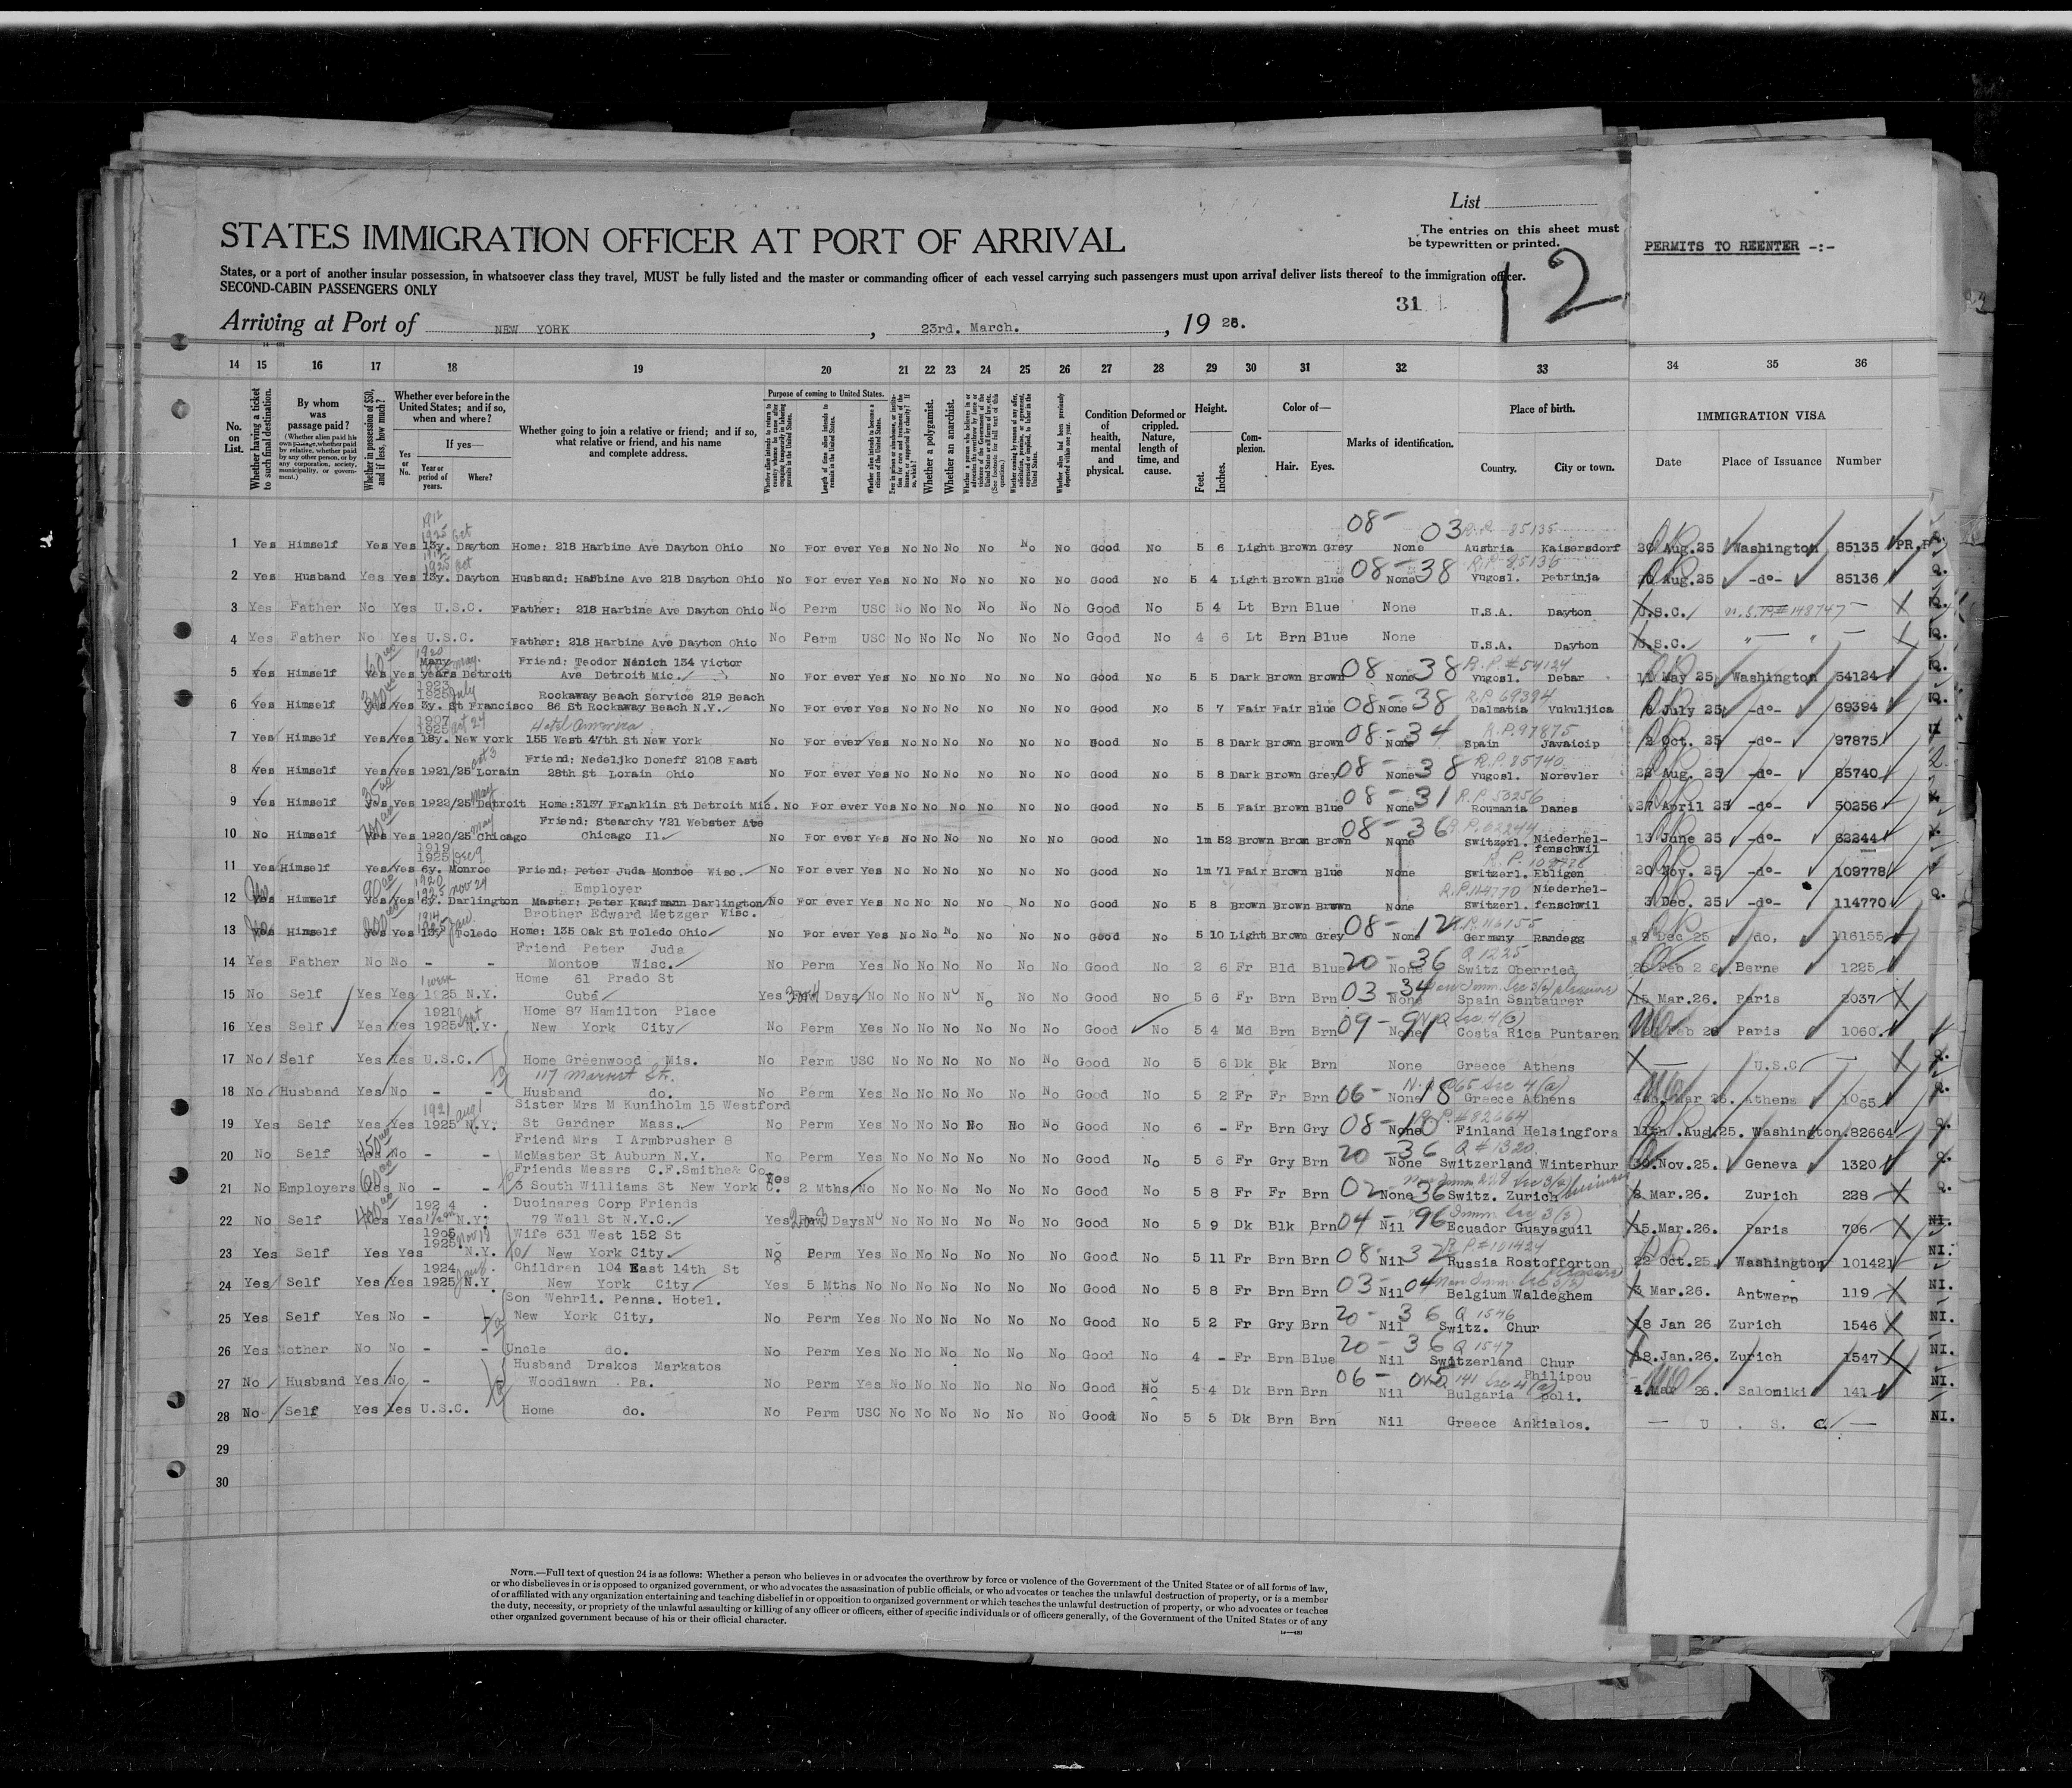 List
STATES IMMIGRATION OFFICER AT PORT OF ARRIVAL
The entries on this sheet must
be typewritten or printed.
PERMITS TO REENTER -:-
States, or a port of another insular possession, in whatsoever class they travel, MUST be fully listed and the master or commanding officer of each vessel carrying such passengers must upon arrival deliver lists thereof to the immigration officer.
SECOND-CABIN PASSENGERS ONLY
31 12
Arriving at Port of NEW YORK, 23rd. March., 19 26.
14 15 16 17 18 19 20 21 22 23 24 25 26 27 28 29 30 31 32 33 34 35 36
No. on List.
Whether having a ticket to such final destination.
By whom was passage paid?
(Whether alien paid his own passage, whether paid by relative, whether paid by any other person, or by any corporation, society, municipality, or government.)
Whether in possession of $50, and if less, how much?
Whether ever before in the United States; and if so, when and where?
Yes or No.
If yes—
Year or period of years.
Where?
Whether going to join a relative or friend; and if so, what relative or friend, and his name and complete address.
Purpose of coming to United States.
Length of time alien intends to remain in the United States.
Whether alien intends to become a citizen of the United States.
Whether a polygamist.
Whether an anarchist.
Condition of health, mental and physical.
Deformed or crippled. Nature, length of time, and cause.
Height.
Feet. Inches.
Complexion.
Color of—
Hair. Eyes.
Marks of identification.
Place of birth.
Country. City or town.
IMMIGRATION VISA
Date Place of Issuance Number
1 Yes Himself Yes Yes 13y. Dayton Home: 218 Harbine Ave Dayton Ohio No For ever Yes No No No No No No Good No 5 6 Light Brown Grey 08-03 None R.P. 85135 Austria Kaisersdorf 20 Aug.25 Washington 85135 PR.P
2 Yes Husband Yes Yes 13y. Dayton Husband: Harbine Ave 218 Dayton Ohio No For ever Yes No No No No No No Good No 5 4 Light Brown Blue 08-38 None R.P. 85136 Yugosl. Petrinja 20 Aug.25 -do- 85136
3 Yes Father No Yes U.S.C. Father: 218 Harbine Ave Dayton Ohio No Perm USC No No No No No No Good No 5 4 Lt Brn Blue None U.S.A. Dayton U.S.C. U.S.P.# 148747
4 Yes Father No Yes U.S.C. Father: 218 Harbine Ave Dayton Ohio No Perm USC No No No No No No Good No 4 6 Lt Brn Blue None U.S.A. Dayton U.S.C. " "
5 Yes Himself Yes Yes Many years Detroit Friend: Teodor Nanich 134 Victor Ave Detroit Mic. No For ever Yes No No No No No No Good No 5 5 Dark Brown Brown 08-38 None R.P.# 54124 Yugosl. Debar 11 May 25 Washington 54124
6 Yes Himself Yes Yes 3y. St Francisco Rockaway Beach Service 219 Beach 86 St Rockaway Beach N.Y. No For ever Yes No No No No No No Good No 5 7 Fair Fair Blue 08-38 None R.P. 69394 Dalmatia Vukuljica 6 July 25 -do- 69394
7 Yes Himself Yes Yes 18y. New York Hotel America 155 West 47th St New York No For ever Yes No No No No No No Good No 5 8 Dark Brown Brown 08-34 None R.P. 97875 Spain Javaicip 2 Oct. 25 -do- 97875
8 Yes Himself Yes Yes 1921/25 Lorain Friend: Nedeljko Doneff 2108 East 28th St Lorain Ohio No For ever Yes No No No No No No Good No 5 8 Dark Brown Grey 08-38 None R.P. 85740 Yugosl. Norevler 22 Aug. 25 -do- 85740
9 Yes Himself Yes Yes 1922/25 Detroit Home:3137 Franklin St Detroit Mic. No For ever Yes No No No No No No Good No 5 5 Fair Brown Blue 08-31 None R.P. 50256 Roumania Danes 27 April 25 -do- 50256
10 No Himself Yes Yes 1920/25 Chicago Friend: Stearchy 721 Webster Ave Chicago Il No For ever Yes No No No No No No Good No 1m 52 Brown Brown Brown 08-36 None R.P. 62244 Switzerl. Niederhelfenschwil 13 June 25 -do- 62244
11 Yes Himself Yes Yes 1919 1925 6y. Monroe Friend: Peter Juda Monroe Wisc. No For ever Yes No No No No No No Good No 1m 71 Fair Brown Blue None R.P. 109778 Switzerl. Ebligen 20 Nov. 25 -do- 109778
12 Yes Himself Yes Yes 1920 1925 6y. Darlington Employer Master: Peter Kaufmann Darlington Wisc. No For ever Yes No No No No No No Good No 5 8 Brown Brown Brown None R.P. 114770 Switzerl. Niederhelfenschwil 3 Dec. 25 -do- 114770
13 Yes Himself Yes Yes 1914 1925 13y Toledo Brother Edward Metzger Home: 135 Oak St Toledo Ohio No For ever Yes No No No No No No Good No 5 10 Light Brown Grey 08-12 None R.P. 116155 Germany Randegg 9 Dec 25 do, 116155
14 Yes Father No No - - Friend Peter Juda Montoe Wisc. No Perm Yes No No No No No No Good No 2 6 Fr Bld Blue 20-36 None Q 1225 Switz Oberried 25 Feb 26 Berne 1225
15 No Self Yes Yes 1 week 1925 N.Y. Home 61 Prado St Cuba Yes Days No No No No No No No Good No 5 6 Fr Brn Brn 03-34 None Spain Santaurer 15 Mar.26. Paris 2037
16 Yes Self Yes Yes 1921 1925 N.Y. Home 87 Hamilton Place New York City No Perm Yes No No No No No No Good No 5 4 Md Brn Brn 09-91 None N.Q Sec 4(b) Costa Rica Puntaren Feb 26 Paris 1060.
17 No Self Yes Yes U.S.C. Home Greenwood Mis. No Perm USC No No No No No No Good No 5 6 Dk Bk Brn None Greece Athens — U.S.C —
117 Market St.
18 No Husband Yes No - - Husband do. No Perm Yes No No No No No No Good No 5 2 Fr Fr Brn 06-18 None Sec 4(a) Greece Athens Mar 26. Athens 1065
19 Yes Self Yes Yes 1921 1925 N.Y. Sister Mrs M Kuniholm 15 Westford St Gardner Mass. No Perm Yes No No No No No No Good No 6 - Fr Brn Gry 08-10 None R.P.# 82664 Finland Helsingfors 11th.Aug.25. Washington. 82664
20 No Self Yes No - - Friend Mrs I Armbrusher 8 McMaster St Auburn N.Y. No Perm Yes No No No No No No Good No 5 6 Fr Gry Brn 20-36 None Q # 1320 Switzerland Winterhur 30.Nov.25. Geneva 1320
21 No Employers Yes No - - Friends Messrs C.F.Smithe& Co. 3 South Williams St New York C. Yes 2 Mths No No No No No No No Good No 5 8 Fr Fr Brn 02-36 None Switz. Zurich 8 Mar.26. Zurich 228
22 No Self Yes Yes 1924 N.Y. Duoinares Corp Friends 79 Wall St N.Y.C. Yes Days No No No No No No No Good No 5 9 Dk Blk Brn 04-96 Nil Ecuador Guayaguil 15.Mar.26. Paris 706 NI.
23 Yes Self Yes Yes 1906 1925. N.Y. Wife 631 West 152 St New York City. No Perm Yes No No No No No No Good No 5 11 Fr Brn Brn 08-32 Nil Russia Rostofforton 22 Oct.25 Washington 101421 NI.
24 Yes Self Yes Yes 1924 1925 N.Y Children 104 East 14th St New York City Yes 5 Mths No No No No No No No Good No 5 8 Fr Brn Brn 03-04 Nil Belgium Waldeghem Mar.26. Antwerp 119 NI.
25 Yes Self Yes No - Son Wehrli. Penna. Hotel. New York City, No Perm Yes No No No No No No Good No 5 2 Fr Gry Brn 20-36 Nil Q 1546 Switz. Chur 18 Jan 26 Zurich 1546 NI.
26 Yes Mother No No - - Uncle do. No Perm Yes No No No No No No Good No 4 - Fr Brn Blue 20-36 Nil Q 1547 Switzerland Chur 18.Jan.26. Zurich 1547 NI.
27 No Husband Yes No - Husband Drakos Markatos Woodlawn . Pa. No Perm Yes No No No No No No Good No 5 4 Dk Brn Brn 06-05 Nil Bulgaria Philipou poli. 4 Mar 26. Saloniki 141 NI.
28 No Self Yes Yes U.S.C. Home do. No Perm USC No No No No No No Good No 5 5 Dk Brn Brn Nil Greece Ankialos. — U . S. C. — NI.
29
30
NOTE.—Full text of question 24 is as follows: Whether a person who believes in or advocates the overthrow by force or violence of the Government of the United States or of all forms of law,
or who disbelieves in or is opposed to organized government, or who advocates the assassination of public officials, or who advocates or teaches the unlawful destruction of property, or is a member
of or affiliated with any organization entertaining and teaching disbelief in or opposition to organized government or which teaches the unlawful destruction of property, or who advocates or teaches
the duty, necessity, or propriety of the unlawful assaulting or killing of any officer or officers, either of specific individuals or of officers generally, of the Government of the United States or of any
other organized government because of his or their official character.